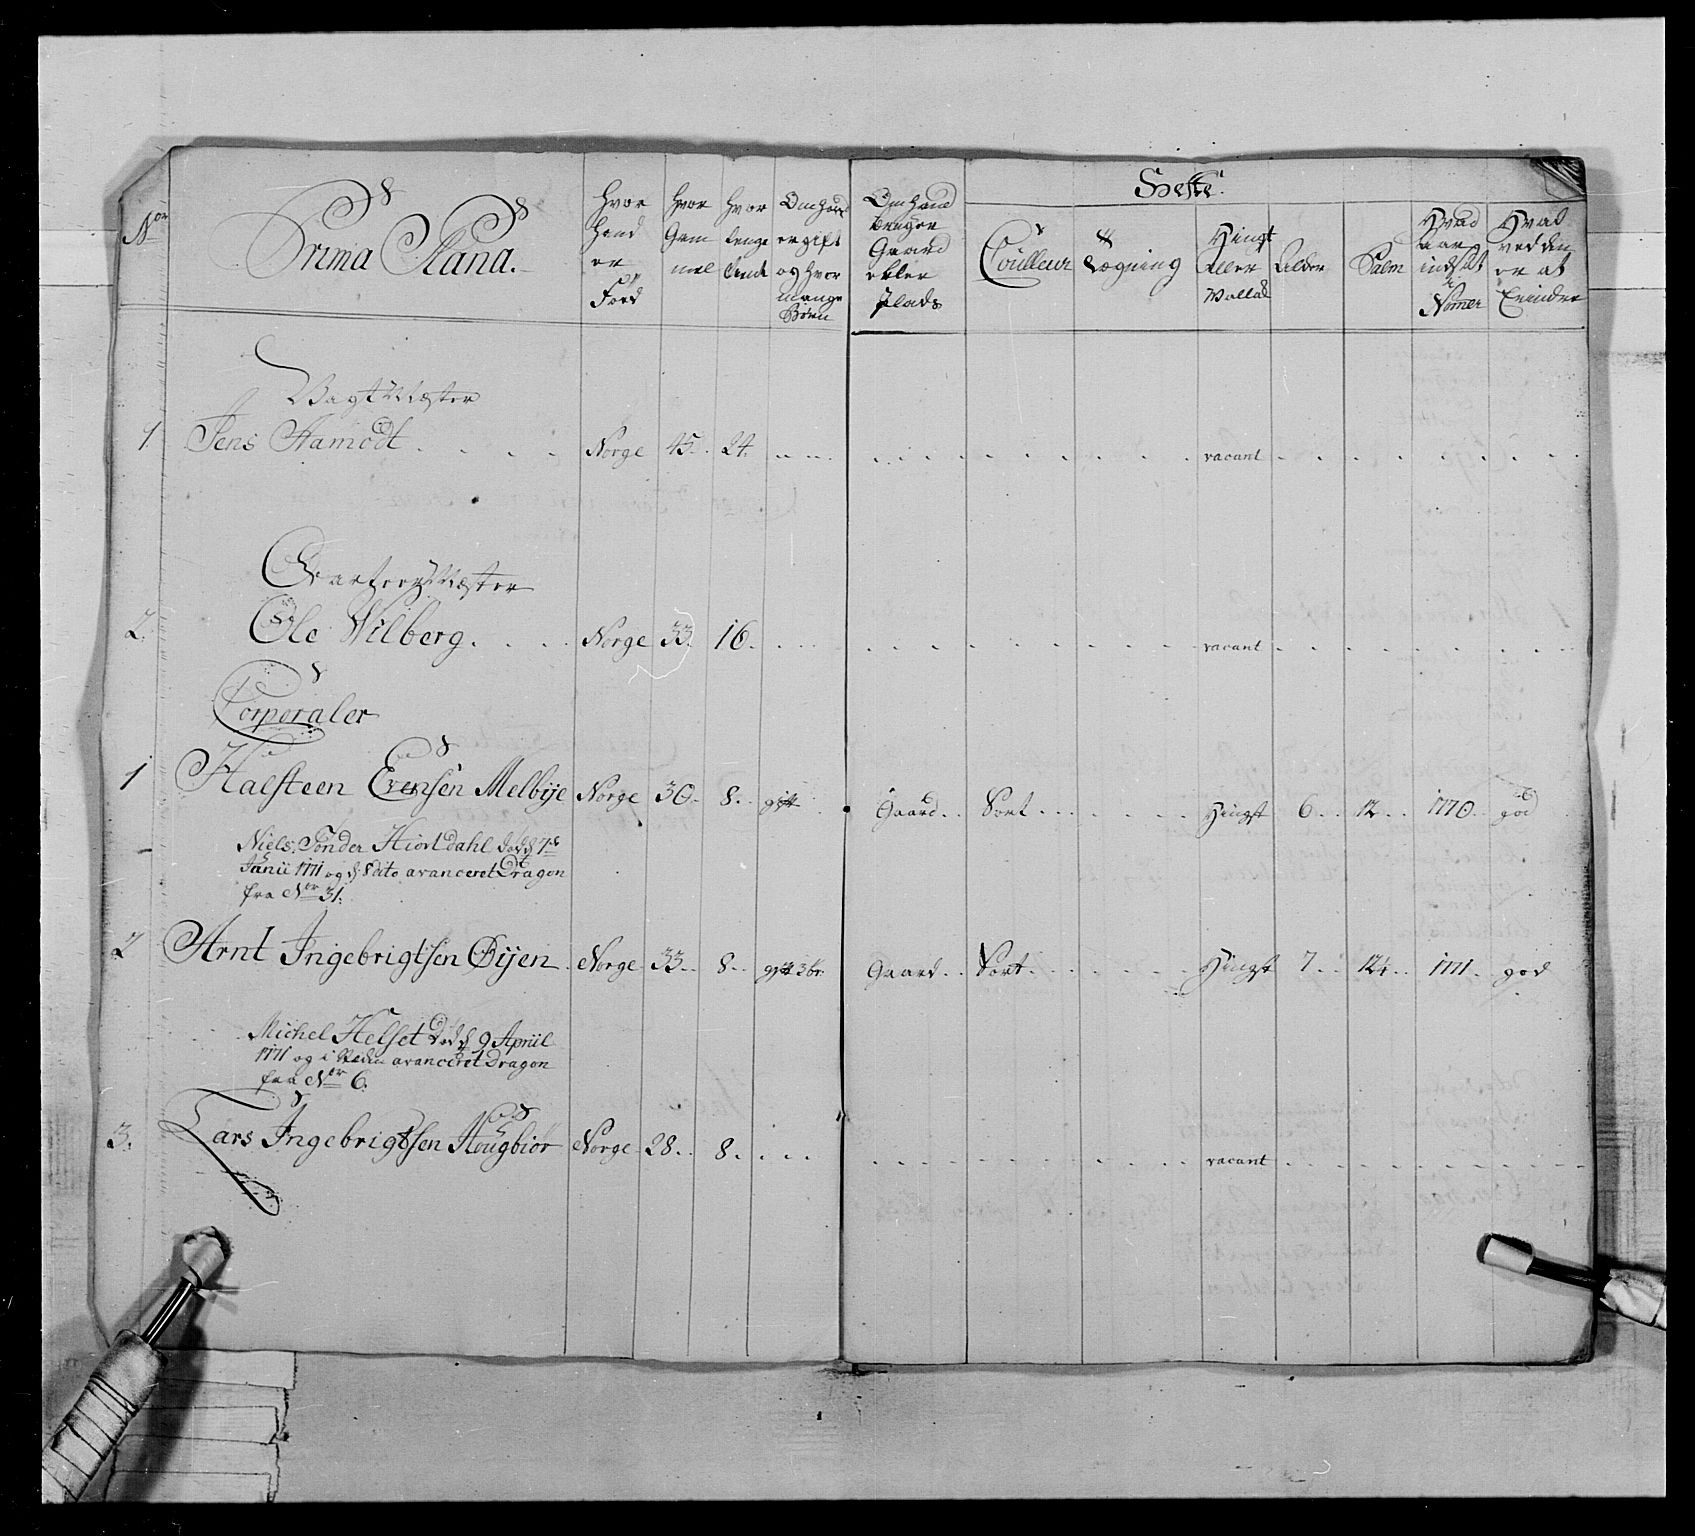 Heste.
No Prima Plana. Hvor hand er Fød Hvor Gam mel Hvor lenge tient Om hand er gift og Hvor mange Børn Om hand bruger Gaard eller Plads Coulleur Tægning Hingst Eller Vallak Alder Palm Hvad aar indsat Nomer Hvad ved den er at Erindre
Vagt Mæster
1. Jens Aamodt . . . . Norge 45. 24. . . . vacant
Qvarteer Mæster
2. Ole Wilberg. . . . Norge 33. 16. . . . vacant
Corporaler
1 Halsteen Evensen Melbÿe Norge 30. 8. gift Gaard. Sort. Hingst 6. 12. 1770. god
Niels Tønder Hiortdahl Død d 7de
Junii 1771 og d 8 dito avanceret Dragon
fra Nor 31.
2 Arnt Ingebrigtsen Øÿen. Norge 33. 8. gift 3 br. Gaard. Sort. Hingst 7. 12¼. 1771. god
Michel Helset Død d 9 Apriil
1771 og i Steden avanceret Dragon
fra Nor 6.
3. Lars Ingebrigtsen Hougbiør Norge 28. 8. . . . vacant